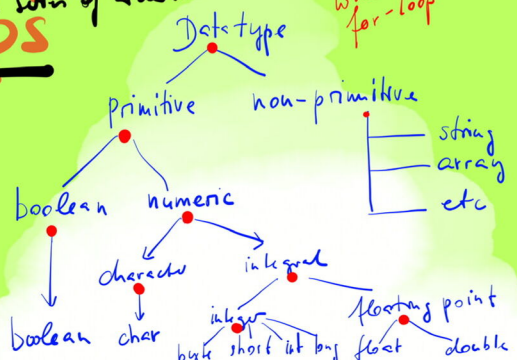 OS
for-loop
Datatype
primitive non-primitive
string
array
etc
boolean numeric
character integral
integer floating point
boolean char byte short int long float double